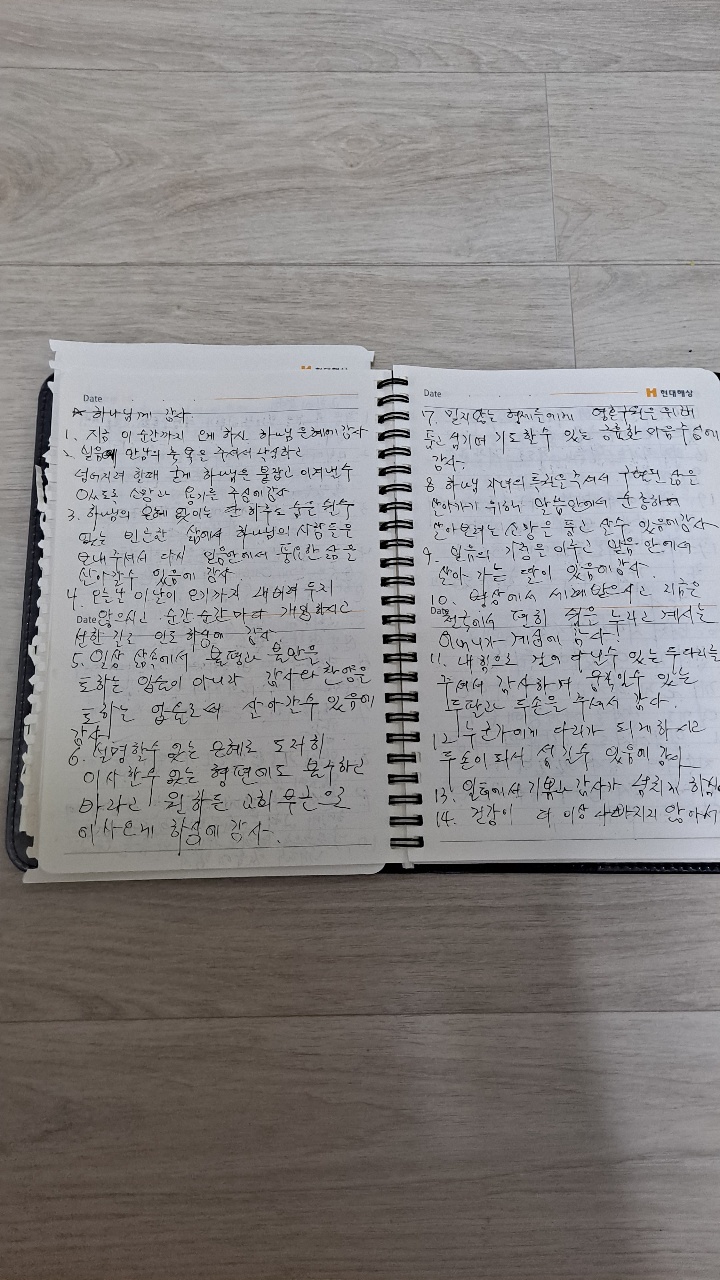 현대해상
Date
☆ 하나님께 감사
1. 지금 이 순간까지 오게 하신 하나님 은혜에 감사
2. 믿음에 만남의 축복을 주셔서 낙심하고
넘어지려 할때 굳게 하나님을 붙잡고 이겨낼수
있도록 소망과 용기를 주심에 감사
3. 하나님의 은혜 없이는 단 하루도 숨을 쉴수
없는 빈곤한 삶에서 하나님의 사람들을
보내주셔서 다시 믿음안에서 풍요한 삶을
살아갈수 있음에 감사.
4. 오늘날 이날이 오기까지 내버려 두지
Date 않으시고 순간순간마다 개입하시고
선한 길로 인도하심에 감사.
5. 일상 삶속에서 불평과 불만을
토하는 입술이 아니라 감사와 찬양을
토하는 입술로서 살아갈수 있음에
감사
6. 설명할수 없는 은혜로 도저히
이사할수 없는 형편에도 불구하고
바라고 원하는 교회 부근으로
이사오게 하심에 감사.
Date
현대해상
7. 믿지않는 형제들에게 영혼구원을 위해
품고 섬기며 기도할수 있는 긍휼한 마음 주심에
감사.
8 하나님 자녀의 특권을 주셔서 구별된 삶을
살아가기 위해 말씀안에서 순종하며
살아보려는 소망을 품고 살수 있음에 감사
9. 믿음의 가정을 이루고 믿음 안에서
살아 가는 딸이 있음에 감사.
10. 병상에서 세례받으시고 지금은
Date 천국에서 편히 쉼을 누리고 계시는
어머니가 계심에 감사.
11. 내 힘으로 걸어 다닐수 있는 두 다리를
주셔서 감사하며 움직일수 있는
두팔과 두손을 주셔서 감사.
12. 누군가에 다리가 되게 하시고
두손이 되서 섬길수 있음에 감사
13. 일터에서 기쁨과 감사가 넘치게 하심에
14. 건강이 더 이상 나빠지지 않아서